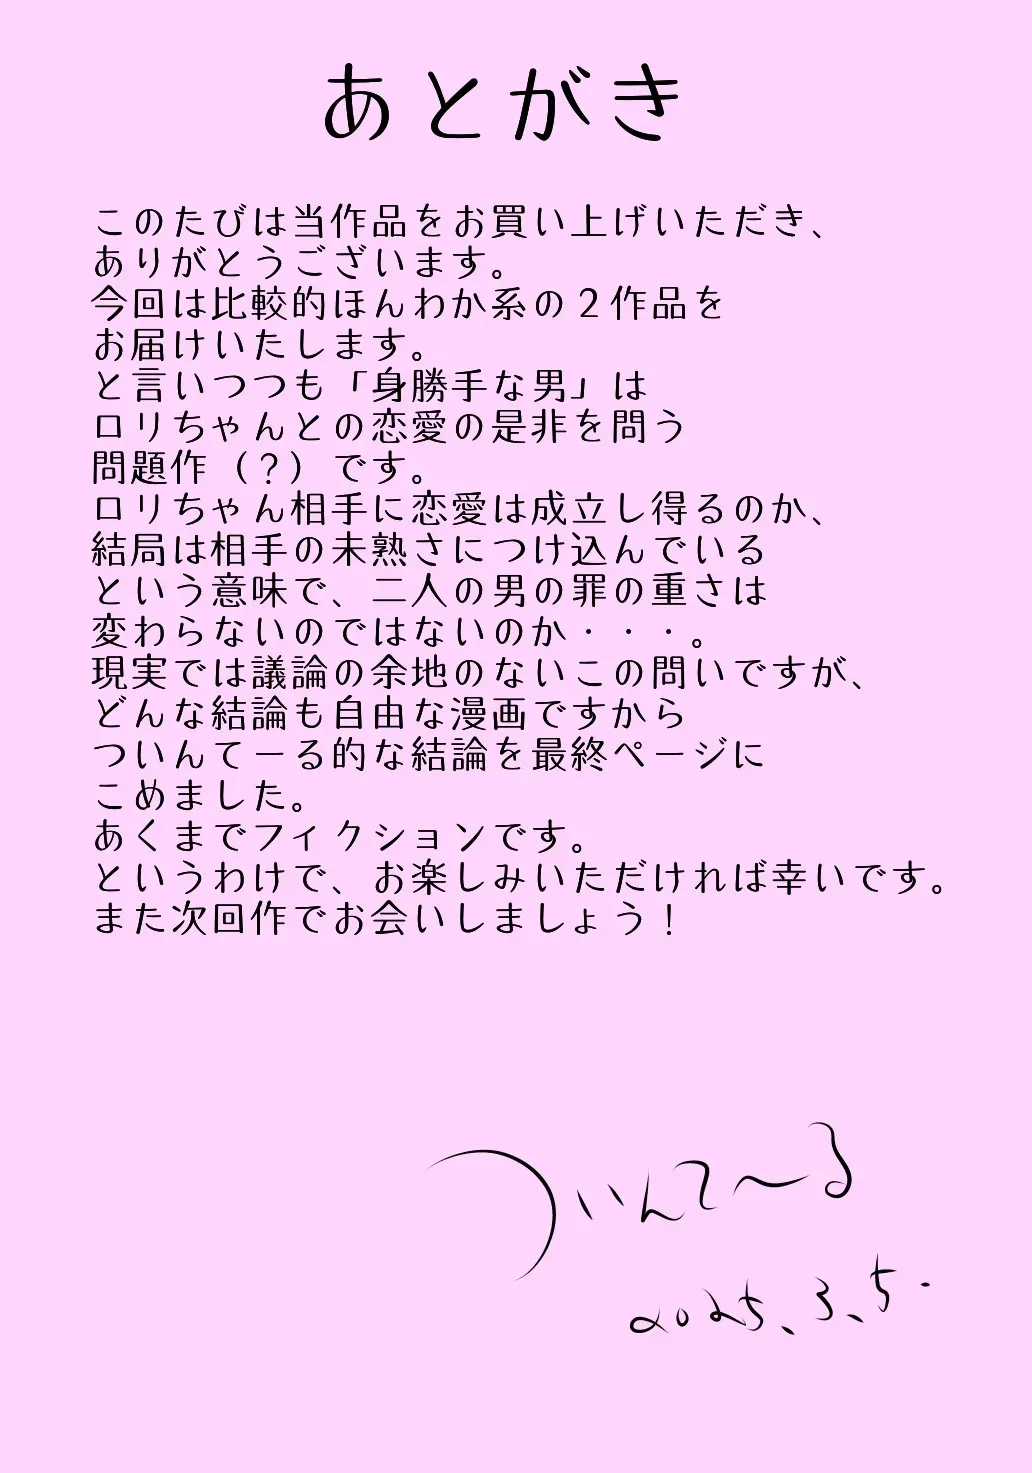 あとがき
このたびは当作品をお買い上げいただき、
ありがとうございます。
今回は比較的ほんわか系の２作品を
お届けいたします。
と言いつつも「身勝手な男」は
ロリちゃんとの恋愛の是非を問う
問題作（？）です。
ロリちゃん相手に恋愛は成立し得るのか、
結局は相手の未熟さにつけ込んでいる
という意味で、二人の男の罪の重さは
変わらないのではないのか・・・。
現実では議論の余地のないこの問いですが、
どんな結論も自由な漫画ですから
ついんてーる的な結論を最終ページに
こめました。
あくまでフィクションです。
というわけで、お楽しみいただければ幸いです。
また次回作でお会いしましょう！
ついんて〜る
2025、3、5.